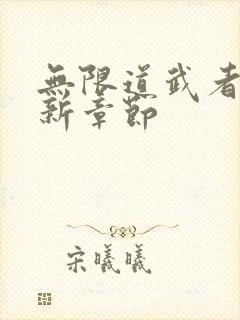 無限道武者
新章節
宋曦曦